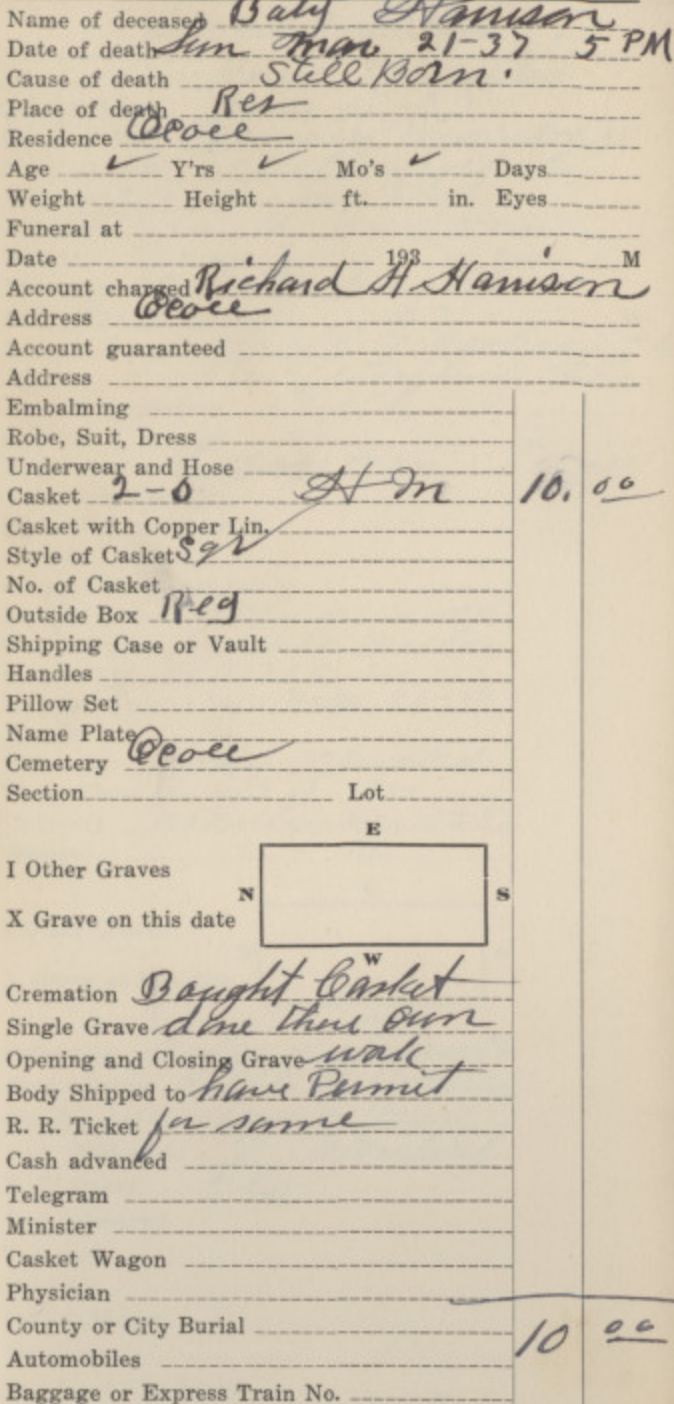 Name of deceased Baby Harrison
Date of death Sun Mar 21-37 5 PM
Cause of death Still Born.
Place of death Res
Residence Ocoee
Age ✓ Y'rs ✓ Mo's ✓ Days
Weight Height ft. in. Eyes
Funeral at
Date 193 M
Account charged Richard H Harrison
Address Ocoee
Account guaranteed
Address
Embalming
Robe, Suit, Dress
Underwear and Hose
Casket 2-0 H M 10. 00
Casket with Copper Lin.
Style of Casket Sqr
No. of Casket
Outside Box Reg
Shipping Case or Vault
Handles
Pillow Set
Name Plate
Cemetery Ocoee
Section Lot
E
I Other Graves
N S
X Grave on this date
W
Cremation Bought Casket
Single Grave done there own
Opening and Closing Grave work
Body Shipped to have Permit
R. R. Ticket for same
Cash advanced
Telegram
Minister
Casket Wagon
Physician
County or City Burial 10 00
Automobiles
Baggage or Express Train No.